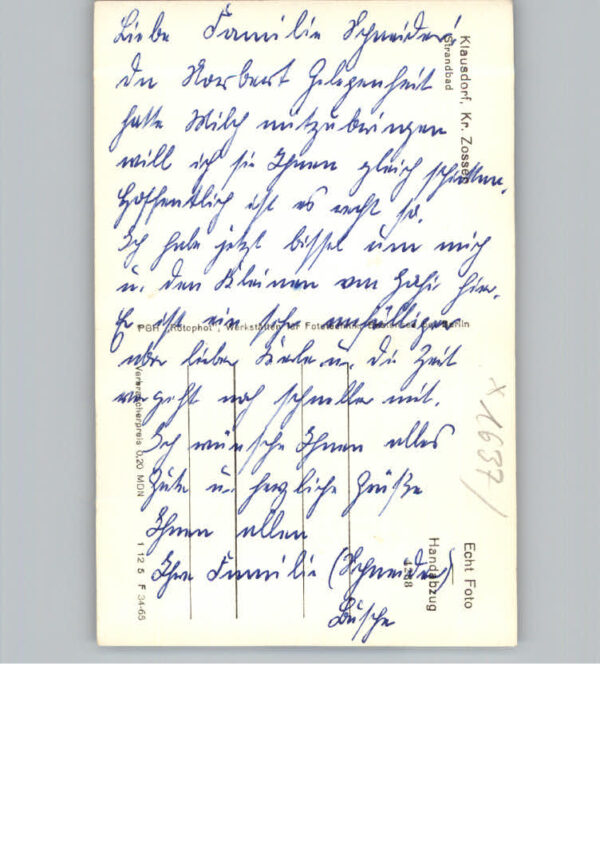 Liebe Familie Schneider!
Da Norbert Gelegenheit
hatte Milch mitzubringen
will ich sie Ihnen gleich schicken.
Hoffentlich ist es recht so.
Ich habe jetzt bissel um mich
u. den Kleinen von hier.
Er ist ein sehr
aber lieber Kerl u. die Zeit
vergeht noch schneller mit.
Ich wünsche Ihnen alles
Gute u. herzliche Grüße
Ihnen allen
Ihre Familie (Schneider)
Busche
Klausdorf, Kr. Zossen
Strandbad
PGH "Rotophot", Werkstätten für
Verbraucherpreis 0,20 MDN 1 12 5 F 34-65
Echt Foto
Handabzug
x 1637/